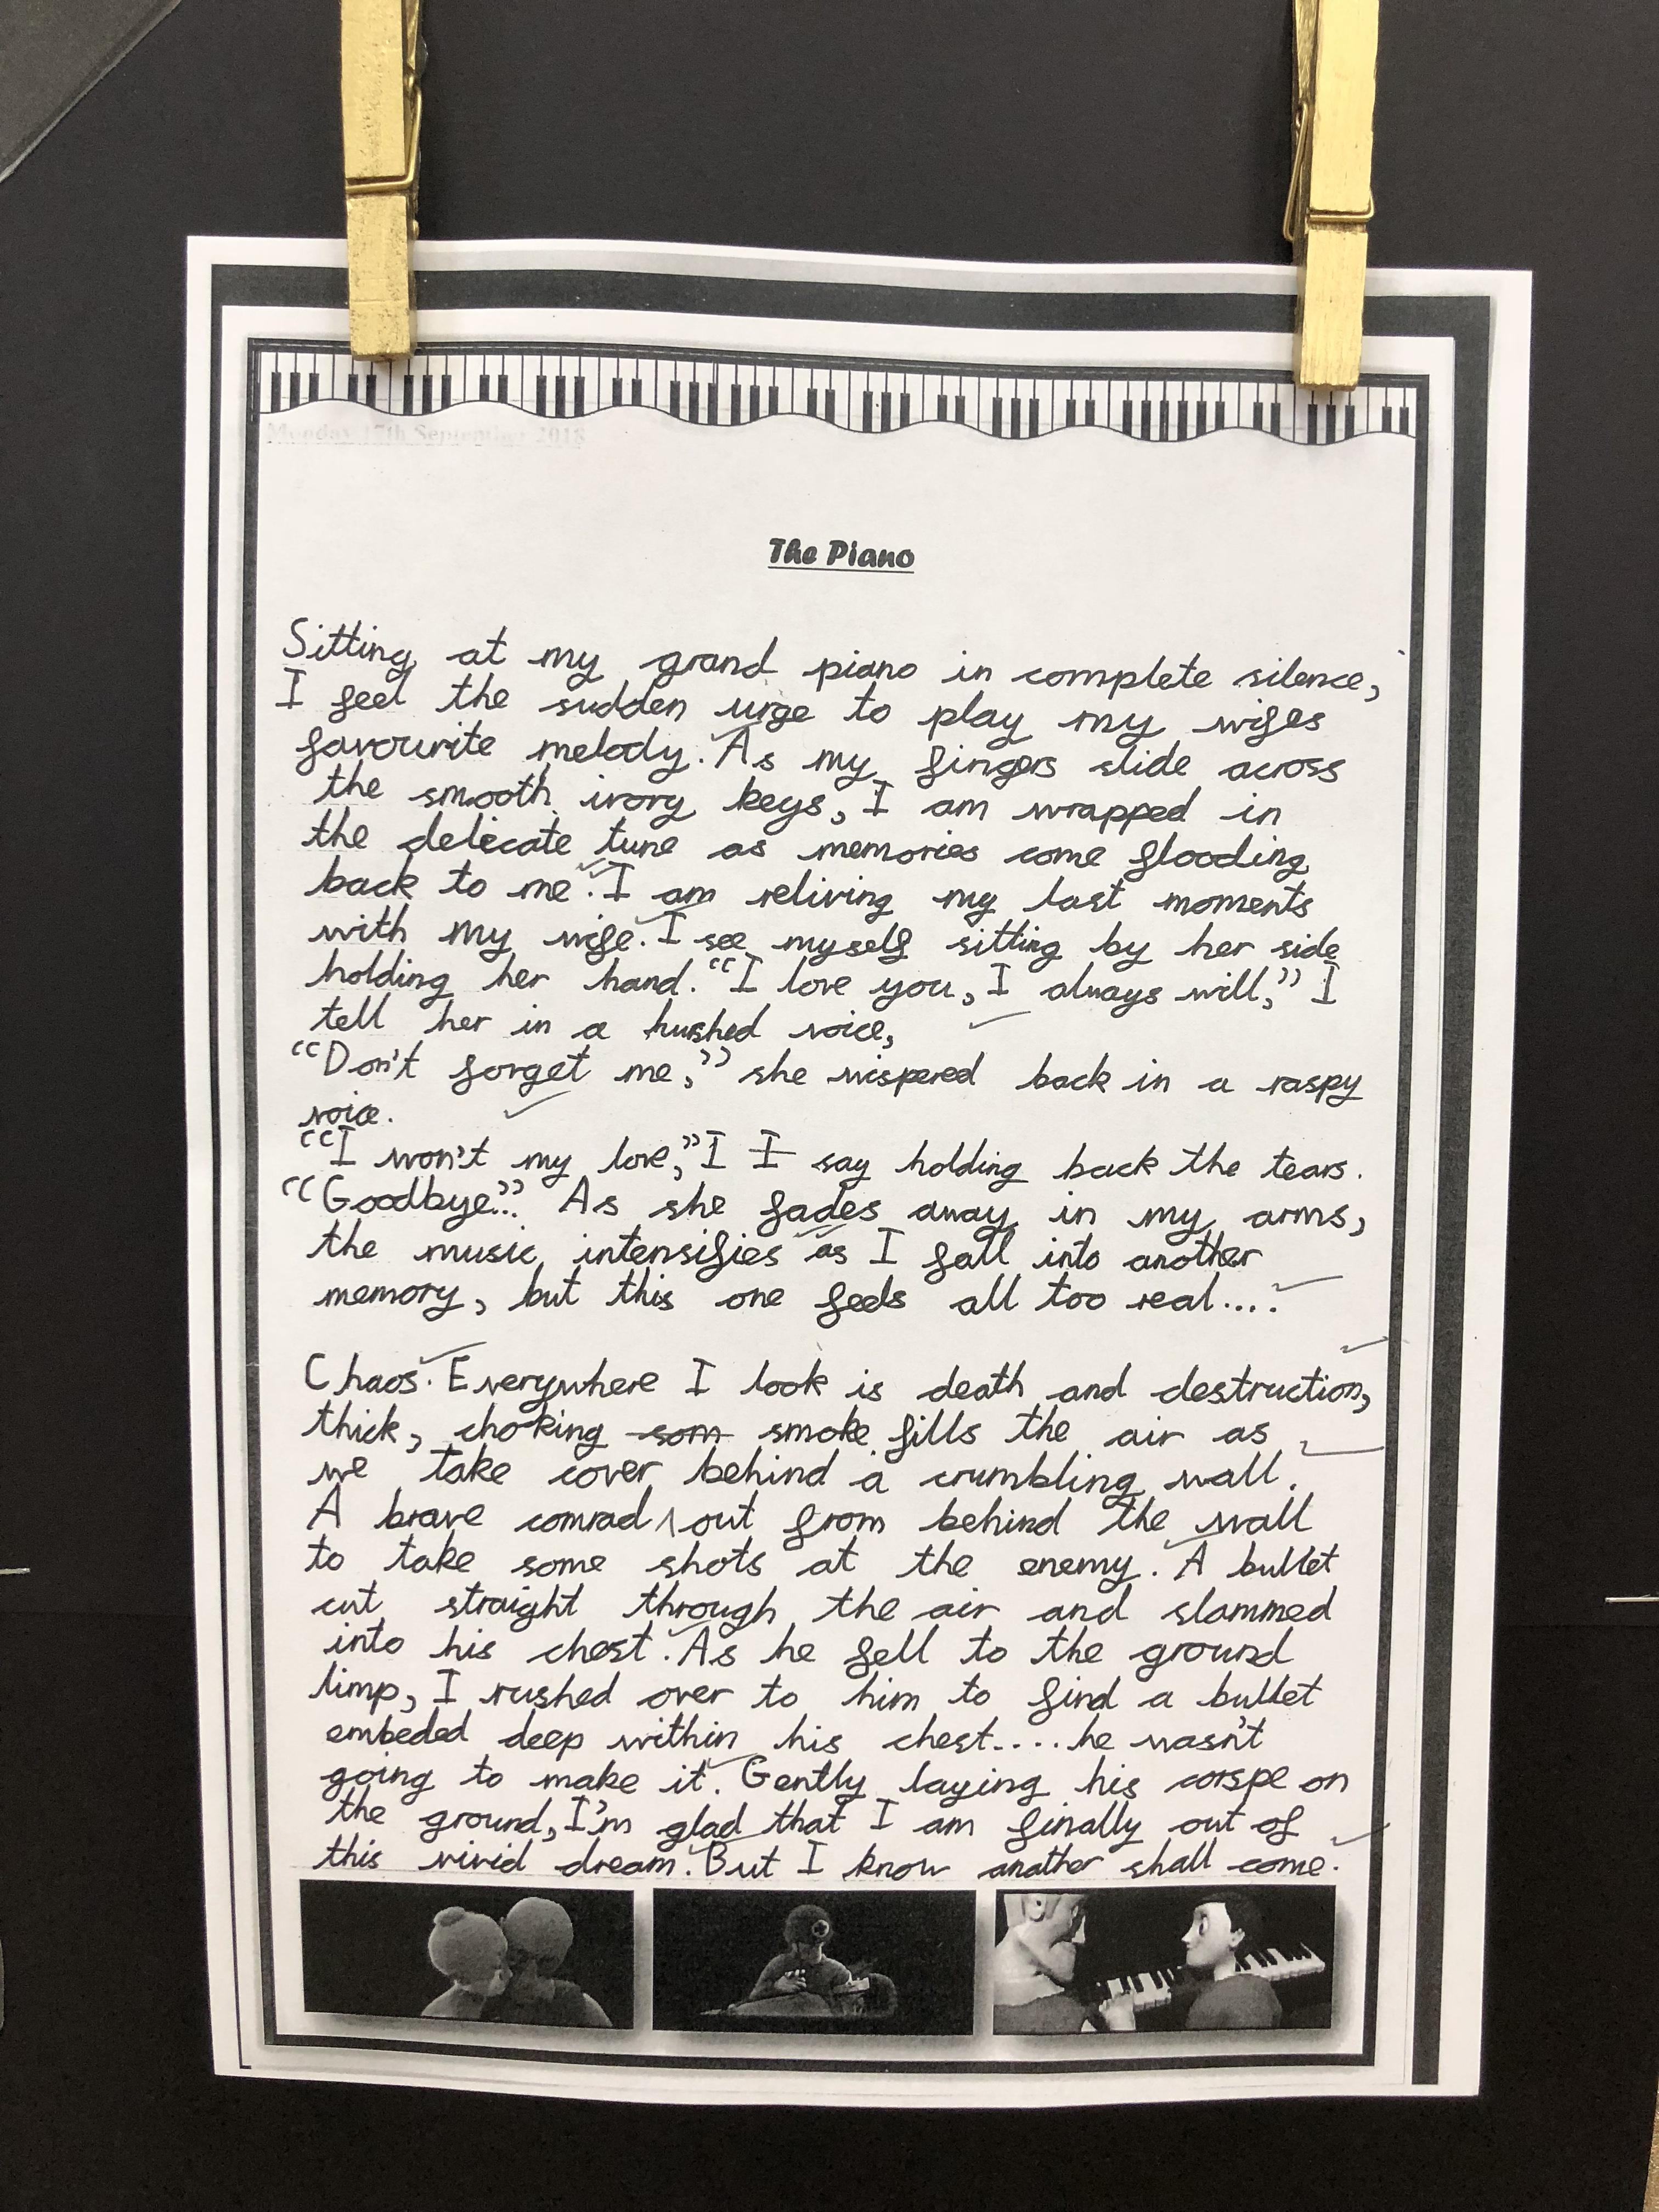 Monday 17th September 2018
The Piano
Sitting at my grand piano in complete silence,
I feel the sudden urge to play my wifes
favourite melody. As my fingers slide across
the smooth ivory keys, I am wrapped in
the delicate tune as memories come flooding
back to me. I am reliving my last moments
with my wife. I see myself sitting by her side
holding her hand. "I love you, I always will," I
tell her in a hushed voice,
"Don't forget me," she wispered back in a raspy
voice.
"I won't my love," I I say holding back the tears.
"Goodbye..." As she fades away in my arms,
the music intensifies as I fall into another
memory, but this one feels all too real....
Chaos. Everywhere I look is death and destruction,
thick, choking som smoke fills the air as
we take cover behind a crumbling wall.
A brave comrad out from behind the wall
to take some shots at the enemy. A bullet
cut straight through the air and slammed
into his chest. As he fell to the ground
limp, I rushed over to him to find a bullet
embeded deep within his chest.... he wasn't
going to make it. Gently laying his corspe on
the ground, I'm glad that I am finally out of
this vivid dream. But I know another shall come.